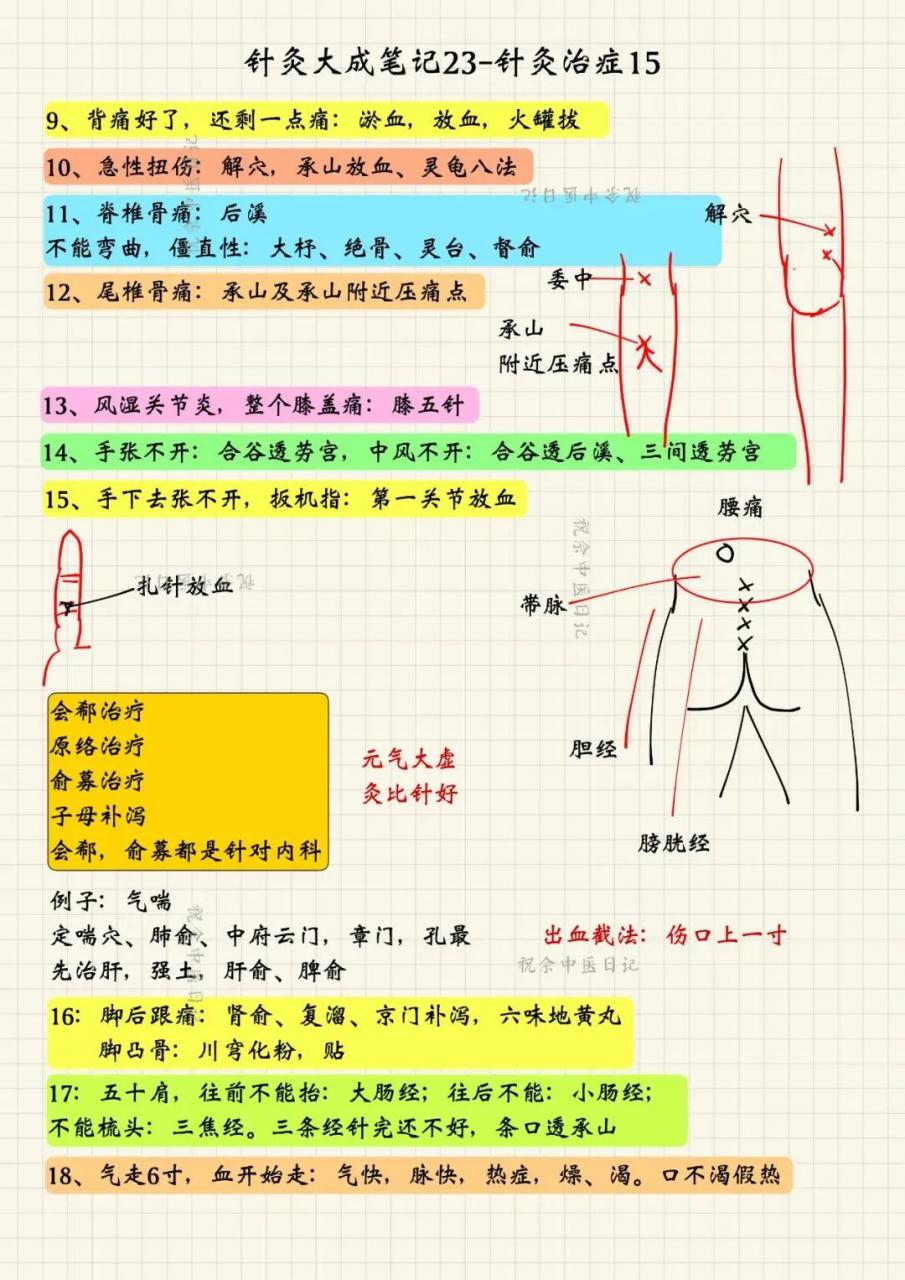 针灸大成笔记23-针灸治症15
9、背痛好了，还剩一点痛：淤血，放血，火罐拔
10、急性扭伤：解穴，承山放血、灵龟八法
11、脊椎骨痛：后溪
不能弯曲，僵直性：大杼、绝骨、灵台、督俞
12、尾椎骨痛：承山及承山附近压痛点
解穴
委中
承山
附近压痛点
13、风湿关节炎，整个膝盖痛：膝五针
14、手张不开：合谷透劳宫，中风不开：合谷透后溪、三间透劳宫
15、手下去张不开，扳机指：第一关节放血
扎针放血
腰痛
带脉
胆经
膀胱经
会郄治疗
原络治疗
俞募治疗
子母补泻
会郄，俞募都是针对内科
元气大虚
灸比针好
例子：气喘
定喘穴、肺俞、中府云门，章门，孔最
先治肝，强土，肝俞、脾俞
出血截法：伤口上一寸
16：脚后跟痛：肾俞、复溜、京门补泻，六味地黄丸
脚凸骨：川穹化粉，贴
17：五十肩，往前不能抬：大肠经；往后不能：小肠经；
不能梳头：三焦经。三条经针完还不好，条口透承山
18、气走6寸，血开始走：气快，脉快，热症，燥、渴。口不渴假热
祝余中医日记
祝余中医日记
祝余中医日记
祝余中医日记
祝余中医日记
祝余中医日记